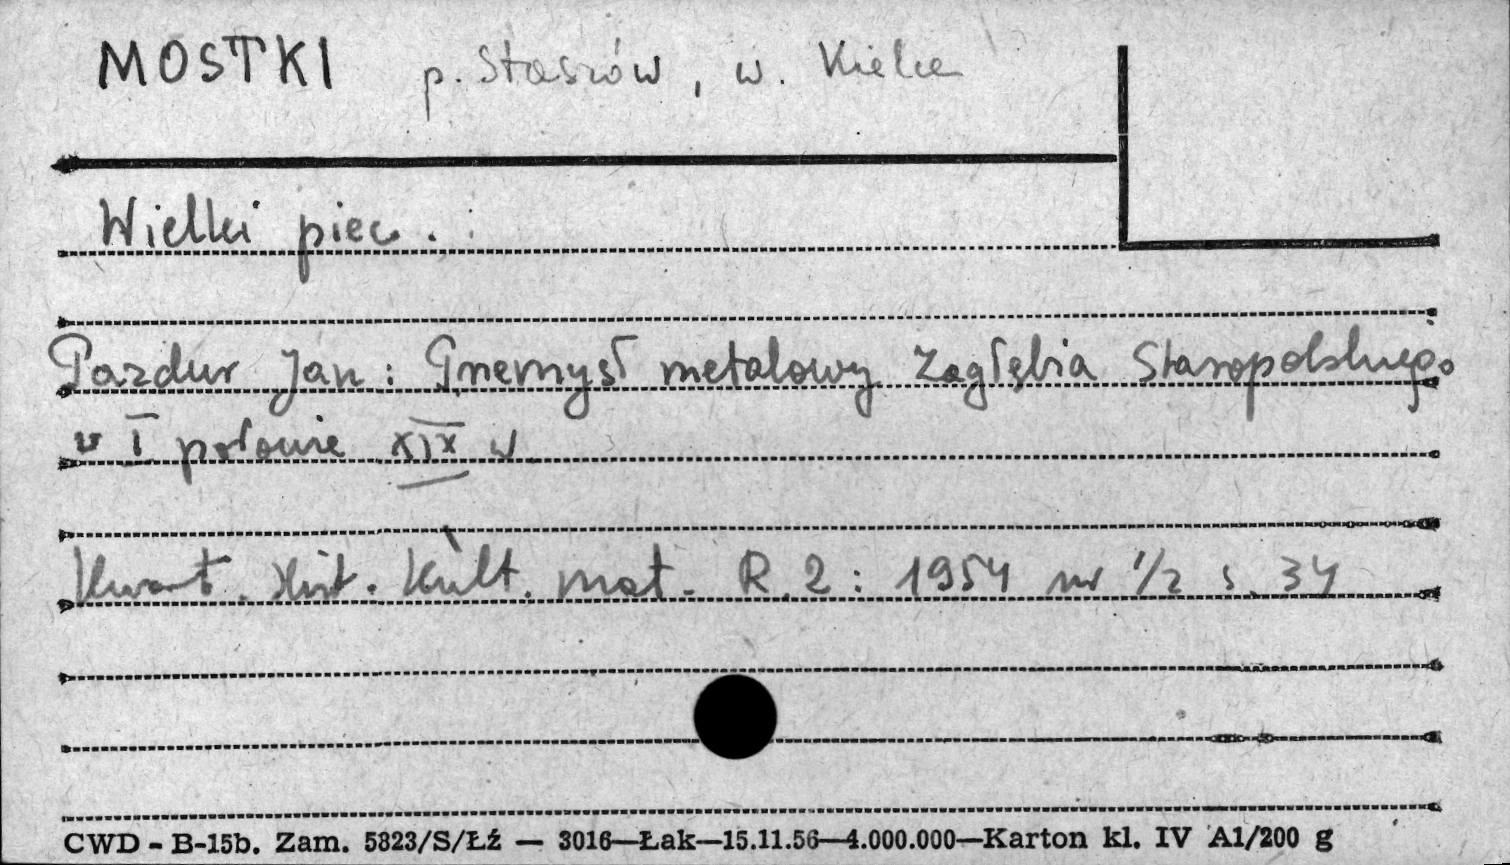 MOSTKI p. Staszów, w. Kielce
Wielki piec.
Pazdur Jan: Przemysł metalowy Zagłębia Staropolskiego
w I połowie XIX w.
Kwart. Hist. Kult. Mat. R. 2: 1954 nr 1/2 s. 34
CWD - B-15b. Zam. 5823/S/Łź — 3016—Łak—15.11.56—4.000.000—Karton kl. IV A1/200 g